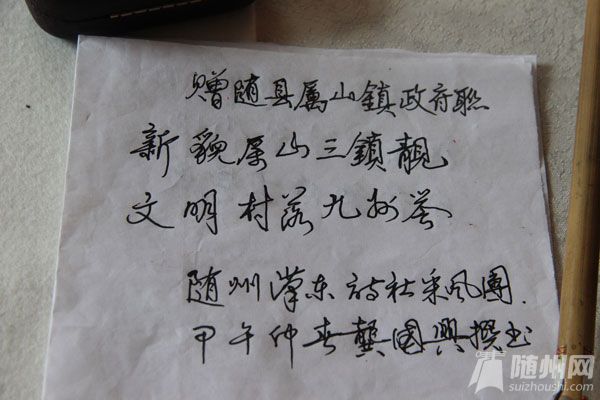 赠随县厲山鎮政府联
新貌厲山三鎮靓
文明村落九州荟
随州漢东诗社采风團.
甲午仲春龔國興撰书
随州网
suizhoushi.com